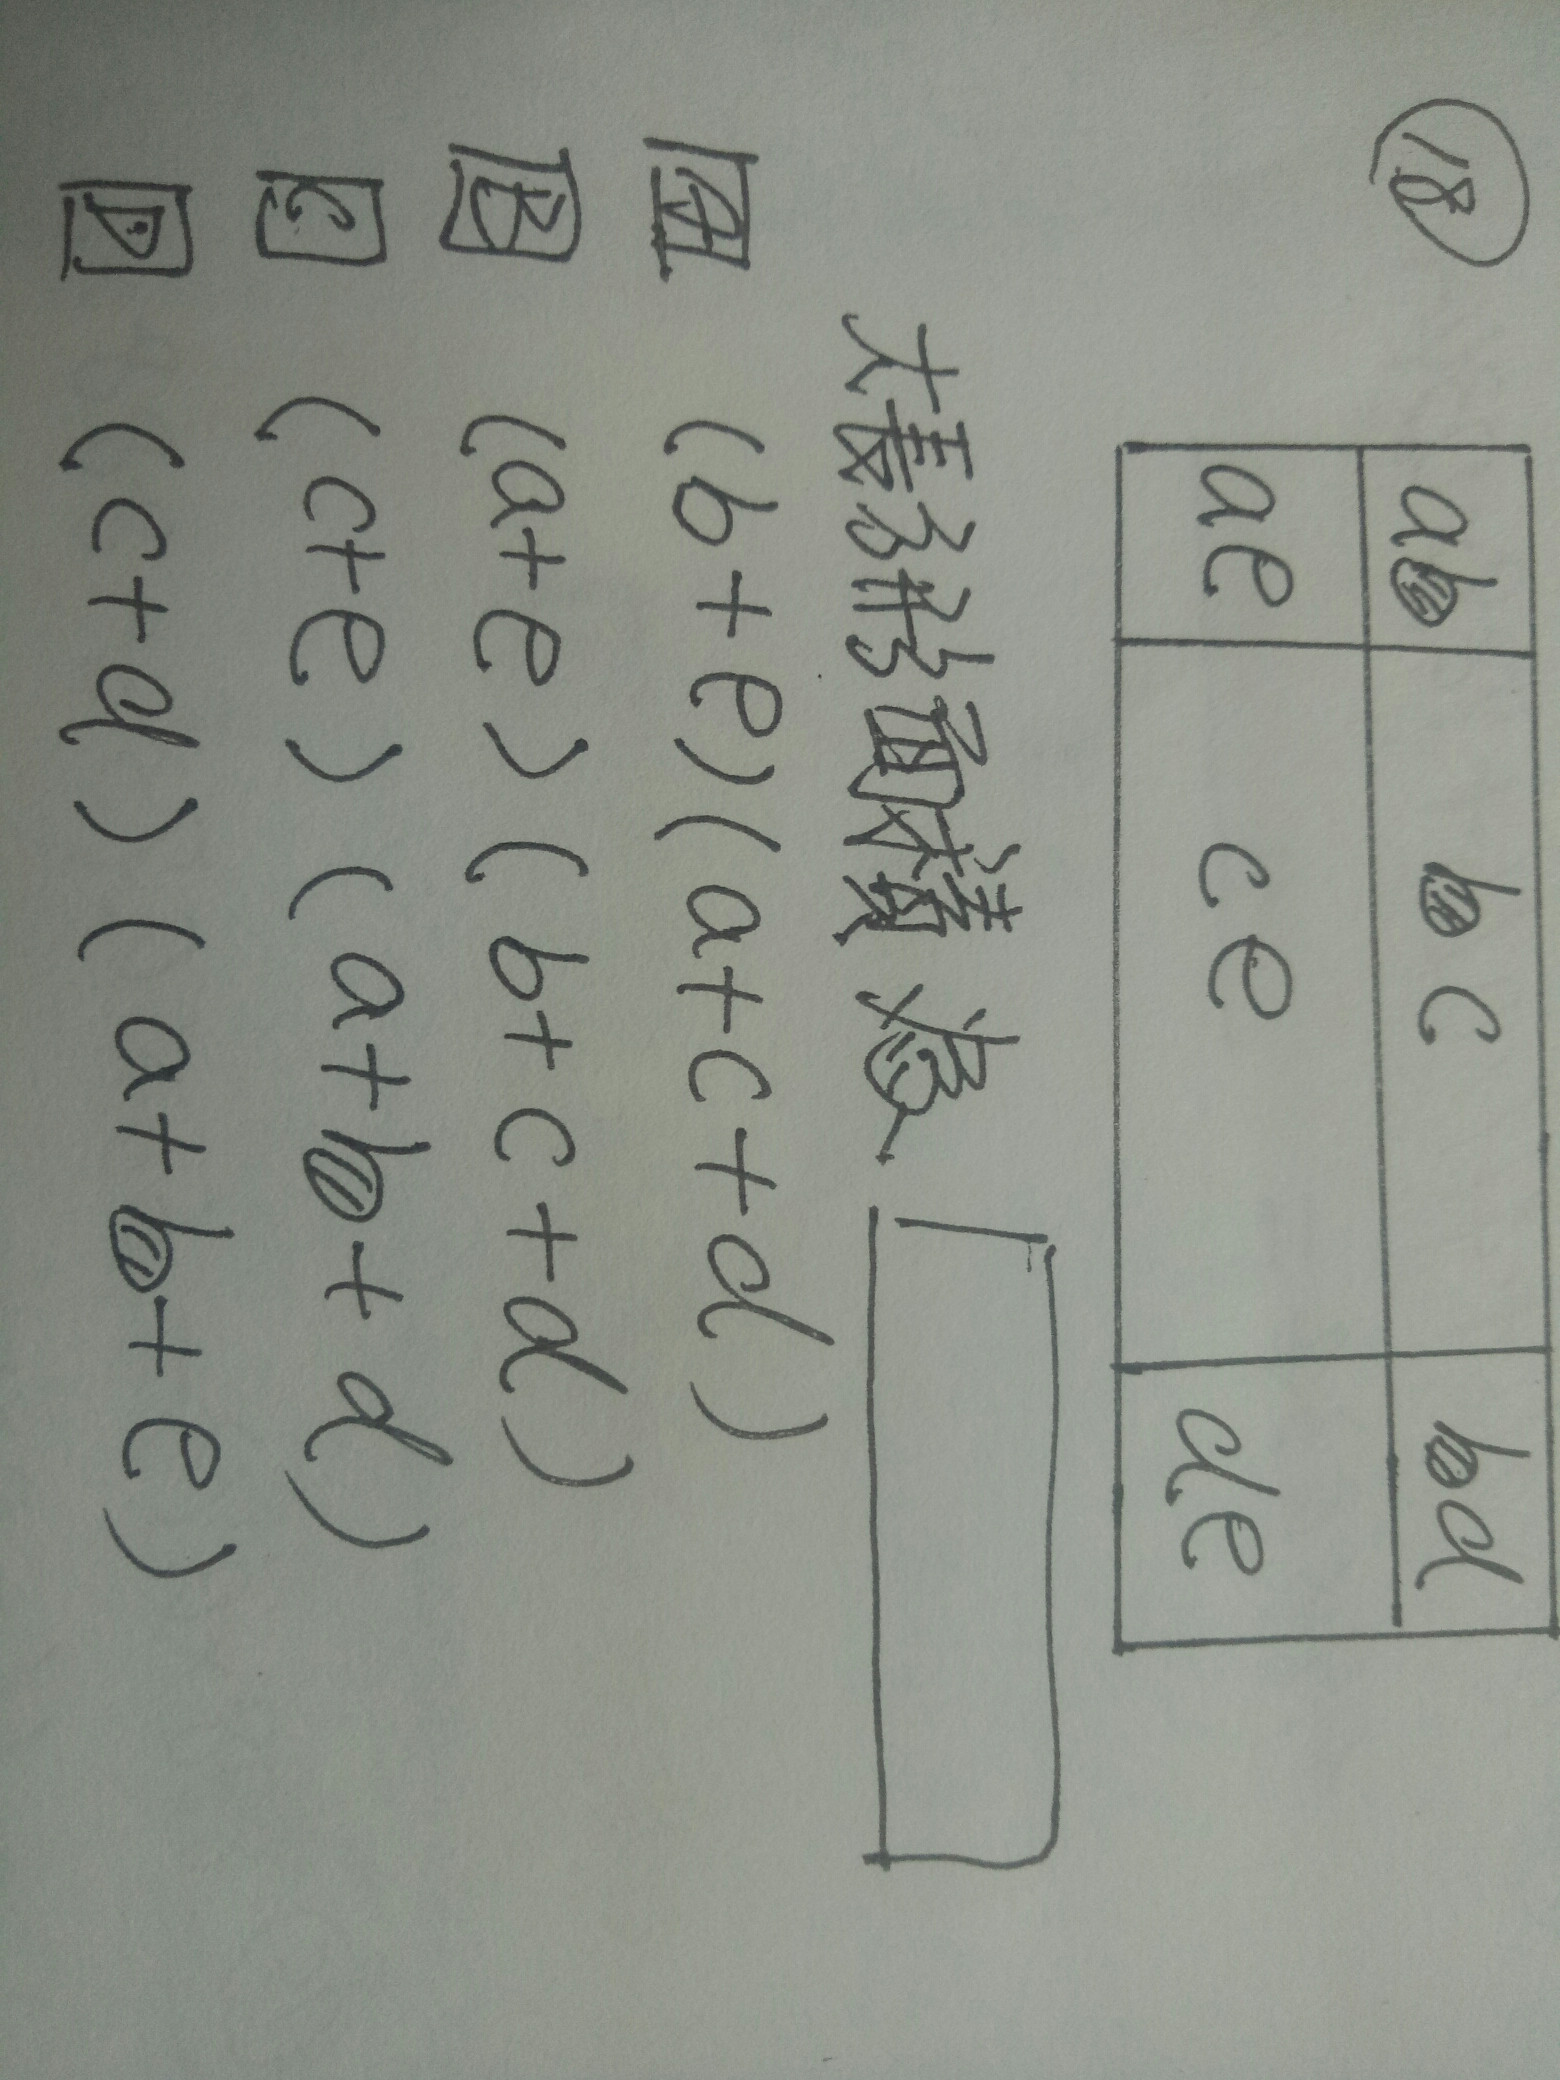 18
ab bc bd
ae ce de
大長方形面積為
A (b+e)(a+c+d)
B (a+e)(b+c+d)
C (c+e)(a+b+d)
D (c+d)(a+b+e)